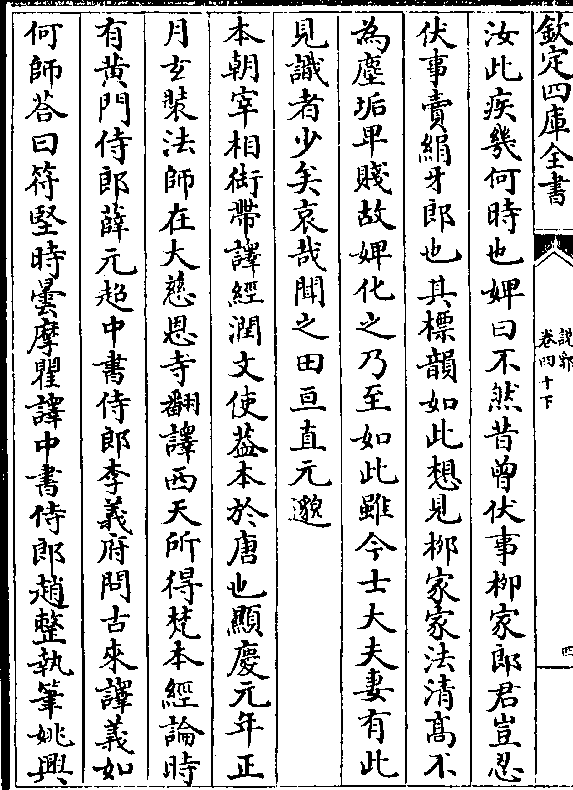 欽定四庫全書
說郛
卷四十下
四
汝此疾幾何時也婢曰不然昔曾伏事柳家郎君豈忍
伏事賣絹牙郎也其標韻如此想見柳家家法清髙不
為塵垢卑賤故婢化之乃至如此雖今士大夫妻有此
見識者少矣哀哉聞之田亘直元邈
本朝宰相銜帶譯經潤文使葢本於唐也顯慶元年正
月玄裝法師在大慈恩寺翻譯西天所得梵本經論時
有黄門侍郎薛元超中書侍郎李義府問古來譯義如
何師荅曰符堅時曇摩瞿譯中書侍郎趙整執筆姚興